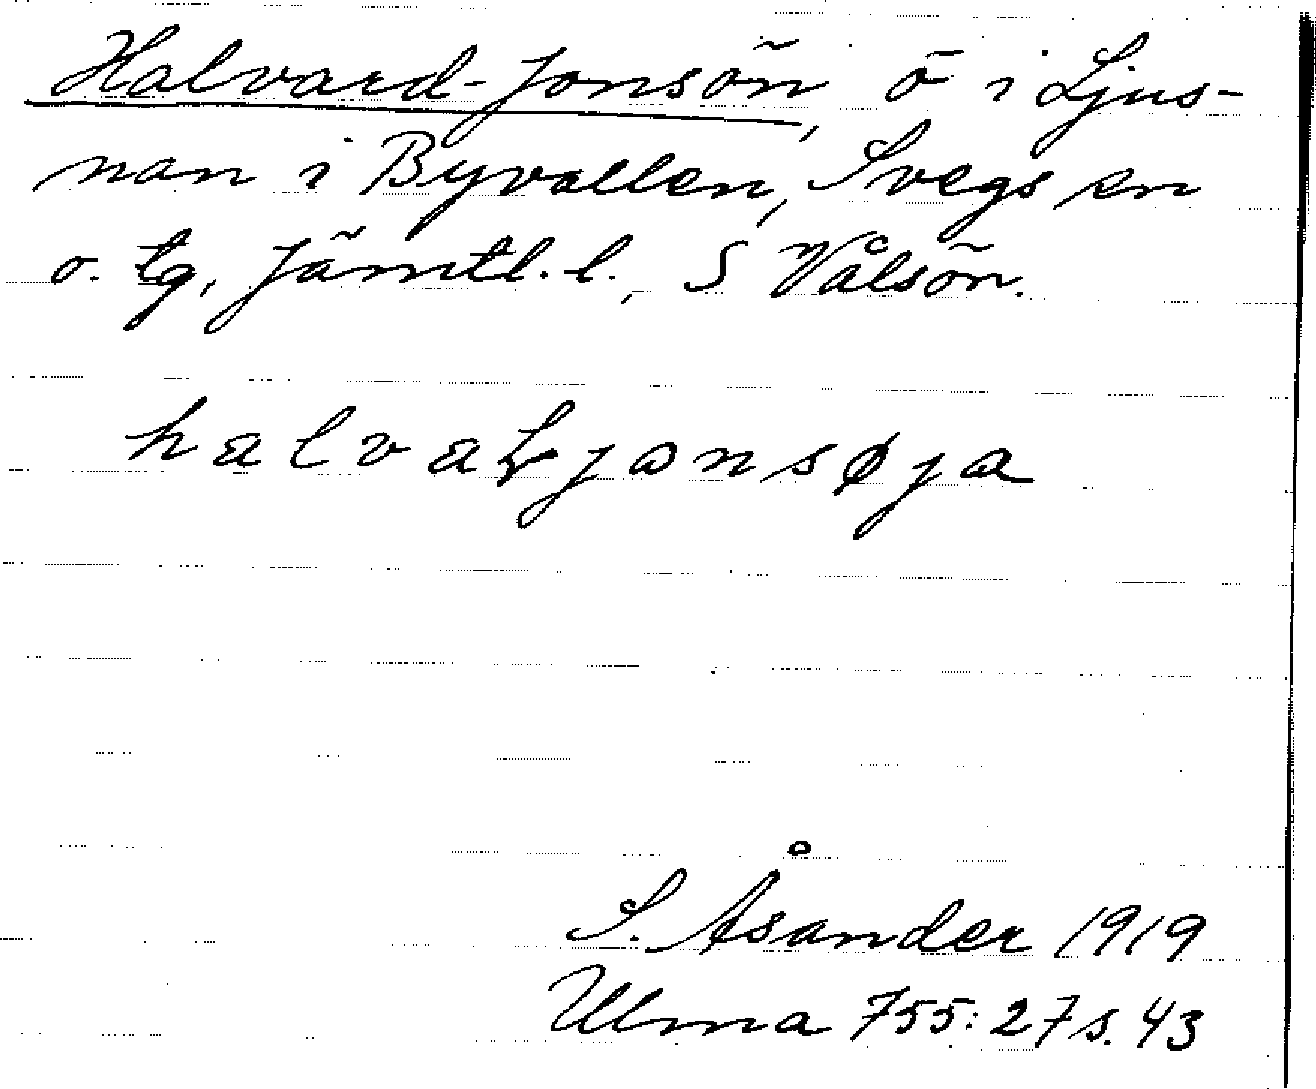 Halvard-Jonsön, ö i Ljus-
nan i Byvallen, Svegs sn
o. tg, Jämtl. l., S Välsön.
halvaⱡjonsøja
S. Åsander 1919
Ulma 755:27 s. 43